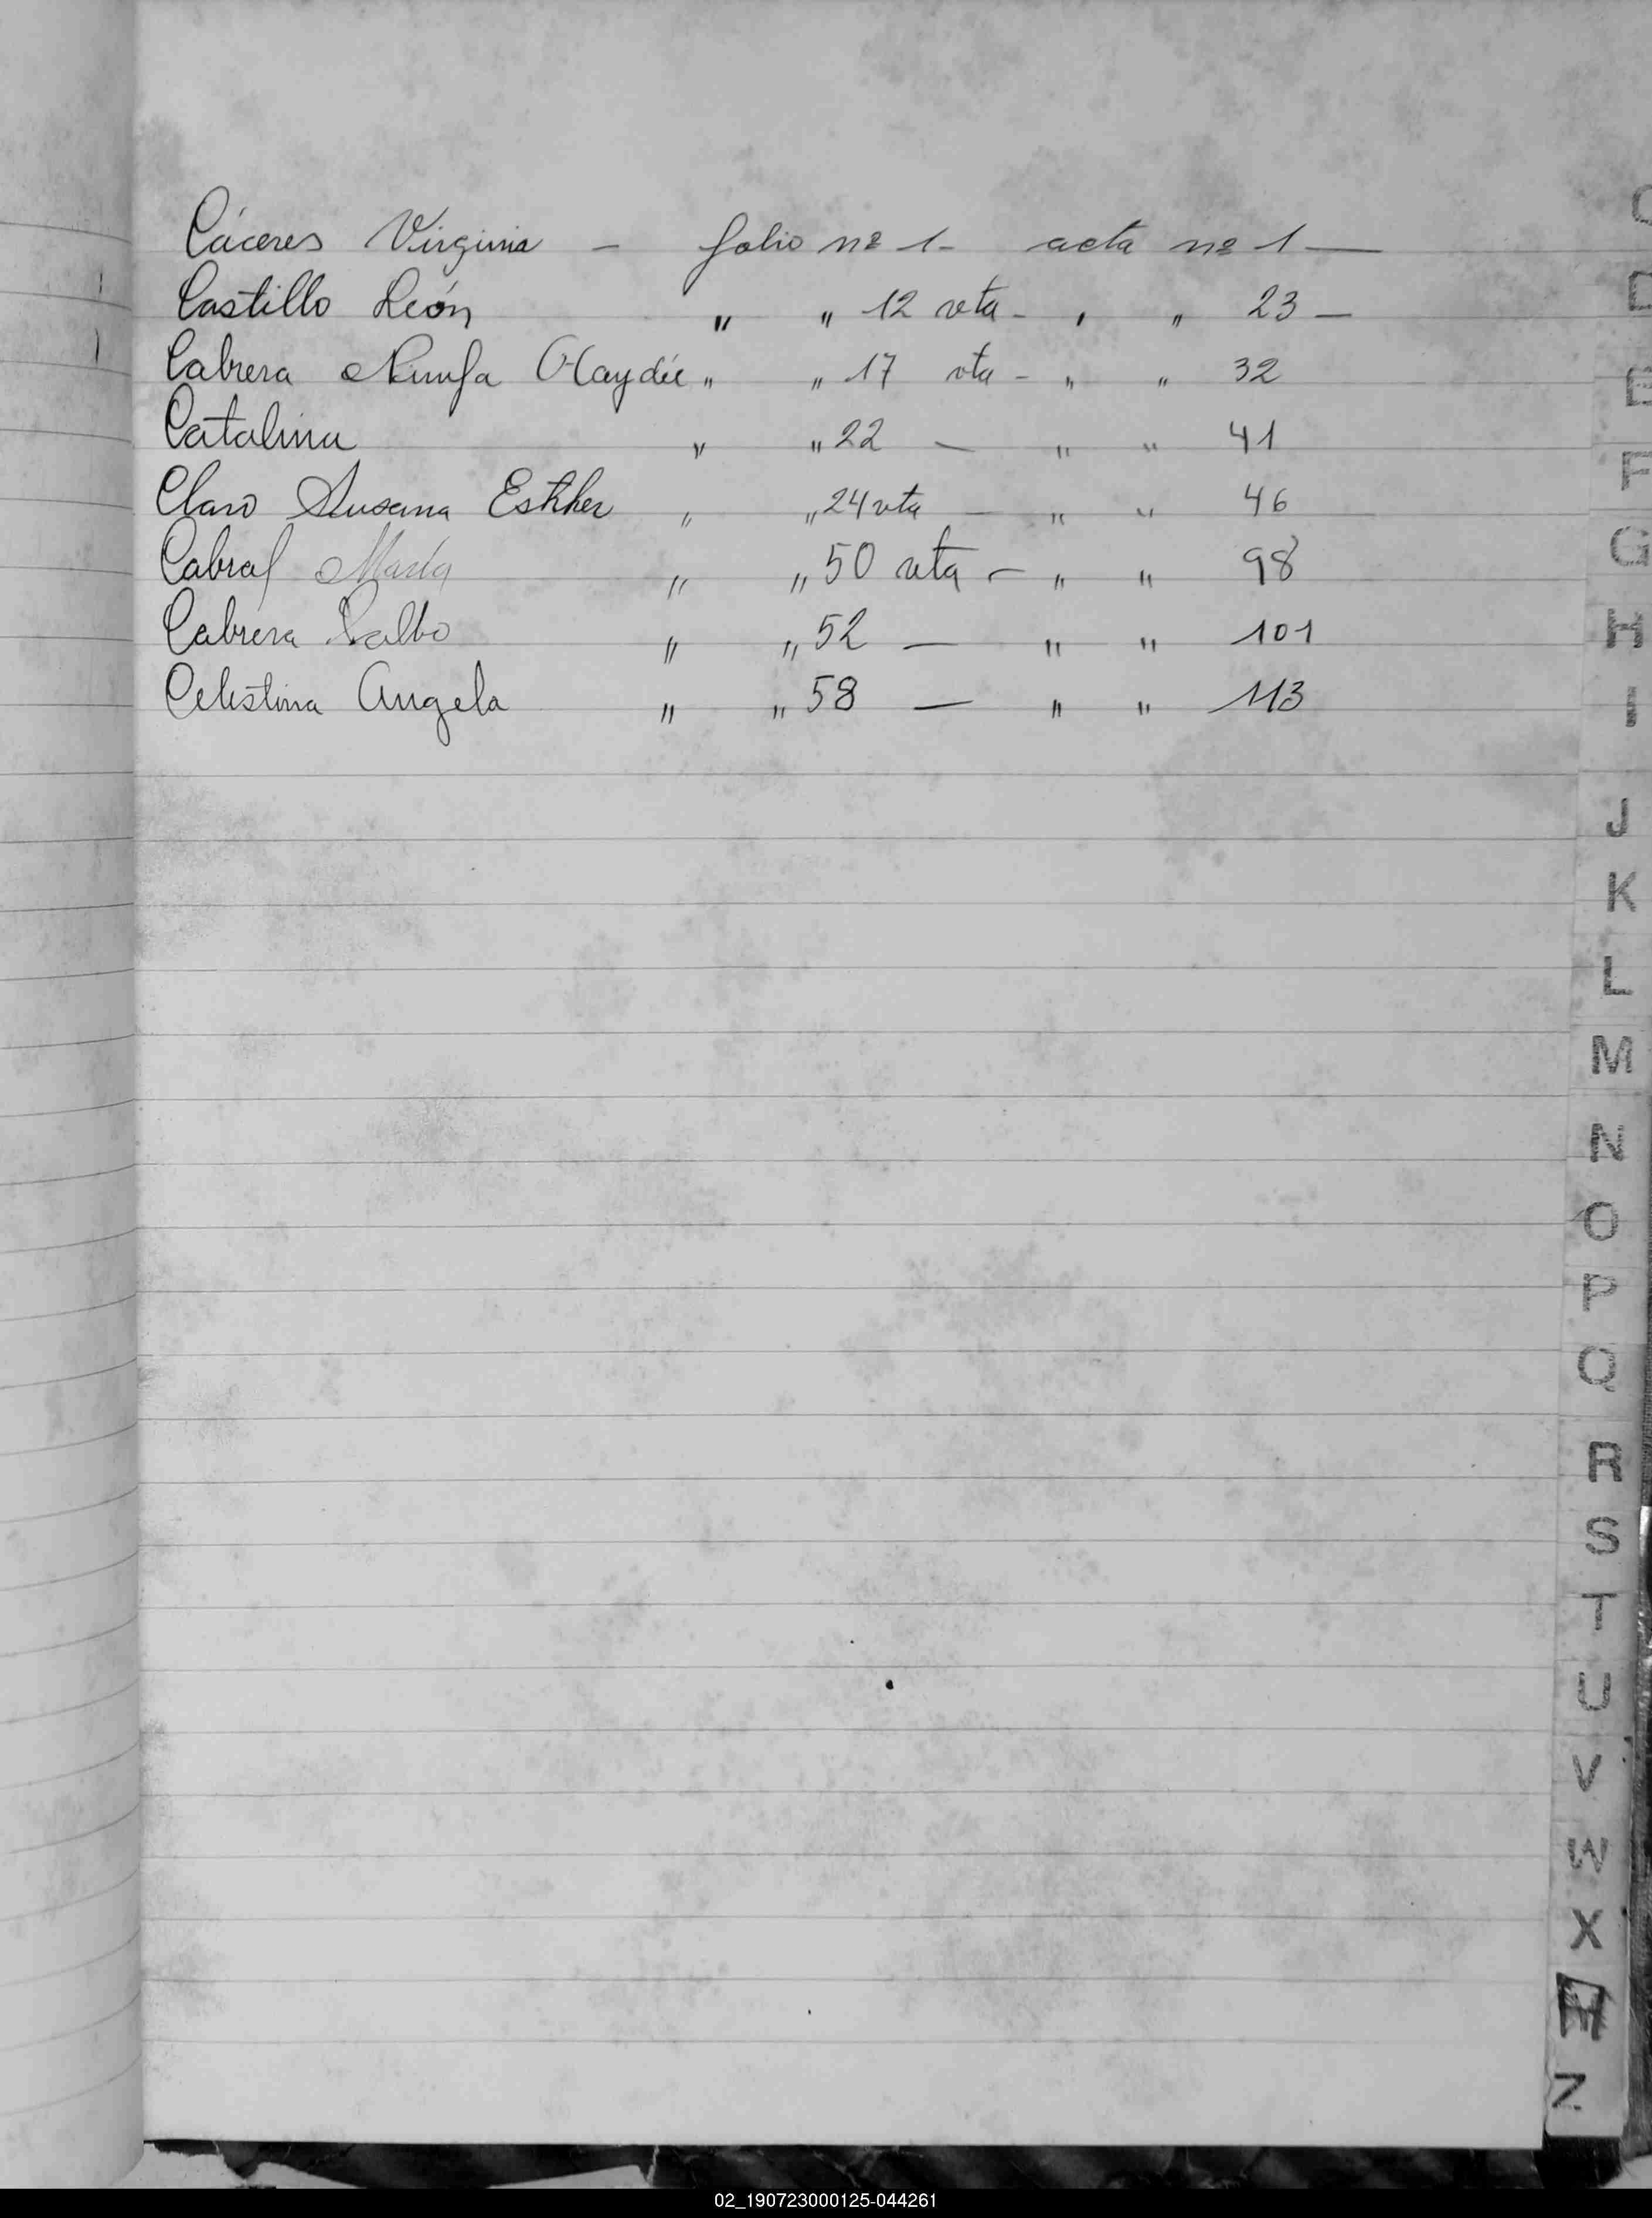 Cáceres Virginia - folio nº 1- acta nº 1 —
Castillo León " " 12 vta - " " 23 —
Cabrera Ninfa Haydée " " 17 vta - " " 32
Catalina " " 22 — " " 41
Claro Susana Esther " " 24 vta — " " 46
Cabral María " " 50 vta — " " 98
Cabrera " " 52 — " " 101
Celestina Angela " " 58 — " " 113
C
D
E
F
G
H
I
J
K
L
M
N
O
P
Q
R
S
T
U
V
W
X
Z
02_190723000125-044261